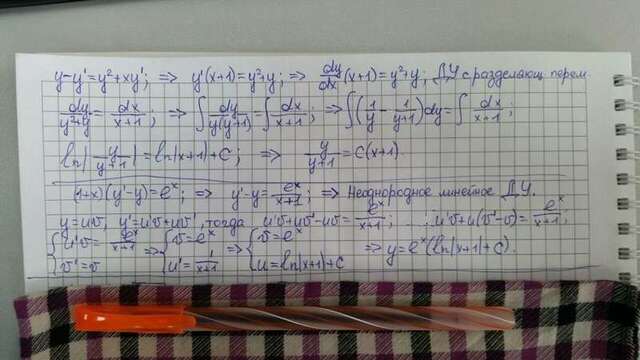 y-y'=y²+xy'; ⇒ y'(x+1)=y²+y; ⇒ dy/dx(x+1)=y²+y; ДУ с разделяющ. перем.
dy/(y²+y)=dx/(x+1); ⇒ ∫dy/(y(y+1))=∫dx/(x+1); ⇒ ∫(1/y-1/(y+1))dy=∫dx/(x+1);
ln|y/(y+1)|=ln|x+1|+C; ⇒ y/(y+1)=C(x+1).
(1+x)(y'-y)=eˣ; ⇒ y'-y=eˣ/(x+1); ⇒ Неоднородное линейное ДУ.
y=uv, y'=u'v+uv', тогда u'v+uv'-uv=eˣ/(x+1); ... u'v+u(v'-v)=eˣ/(x+1);
{u'v=eˣ/(x+1) ⇒ {v=eˣ ⇒ {v=eˣ ⇒ y=eˣ(ln|x+1|+C).
v'=v u'=1/(x+1) u=ln|x+1|+C